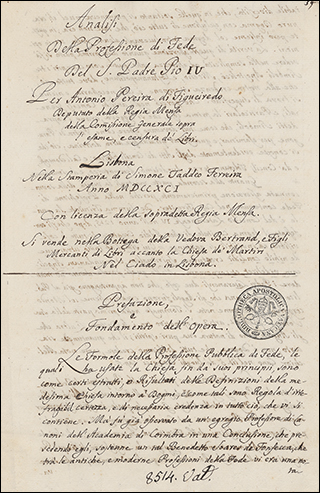 Analisi
Della Professione di Fede
Del S. Padre Pio IV
Per Antonio Pereira di Figueiredo
Deputato della Regia Mensa
della Comissione Generale sopra
l'esame, e censura de' Libri.
Lisbona
Nella Stamperia di Simone Taddeo Ferreira
Anno MDCCXCI
Con licenza della sopradetta Regia Mensa.
Si vende nella Bottega della Vedova Bertrand, e Figli
Mercanti di Libri accanto la Chiesa de' Martiri
Nel Ciado in Lisbona.
Prefazione,
e
Fondamento dell'Opera.
Le Formole della Professione Pubblica di Fede, le
quali ha usato la Chiesa, fin da suoi principii, sono
come certi estratti, e Risultati delle Definizioni della me-
desima Chiesa intorno a Dogmi, e come tali sono Regola d'in-
certezza, e di necessaria credenza in tutto ciò, che vi si
contiene. Ma fù già osservato da un egregio Professore di Ca-
noni dell'Accademia di Coimbra in una Conclusione, che pre-
sedendo egli, sostenne un tal Benedetto Soares de Fonseca, che
trà le antiche, e moderne Professioni della Fede vi era una
8514. Vat.